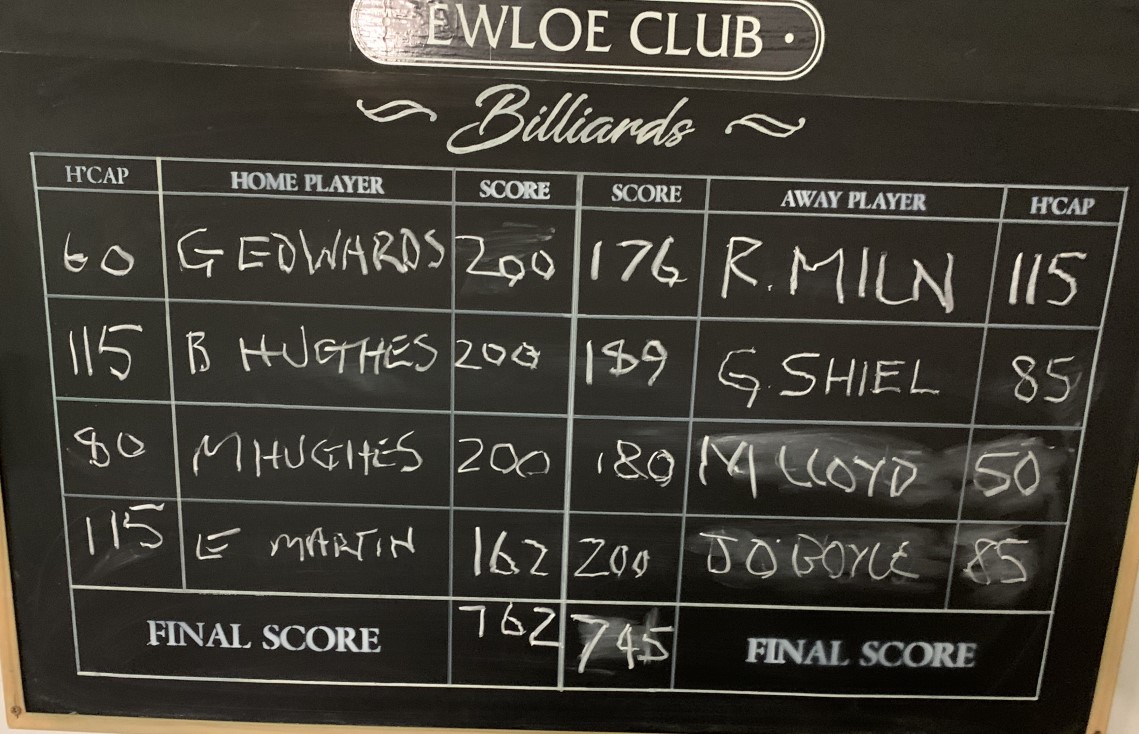 EWLOE CLUB ·
Billiards
H'CAP HOME PLAYER SCORE SCORE AWAY PLAYER H'CAP
60 G EDWARDS 200 176 R. MILN 115
115 B HUGHES 200 189 G. SHIEL 85
80 M HUGHES 200 180 M LLOYD 50
115 E MARTIN 162 200 J O'BOYLE 85
FINAL SCORE 762 745 FINAL SCORE